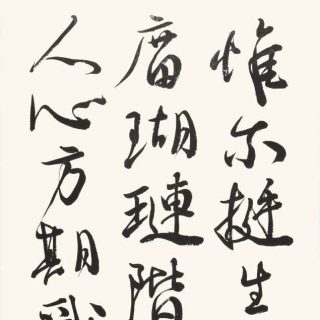 惟尓挺生
庿瑚璉階
人心方期